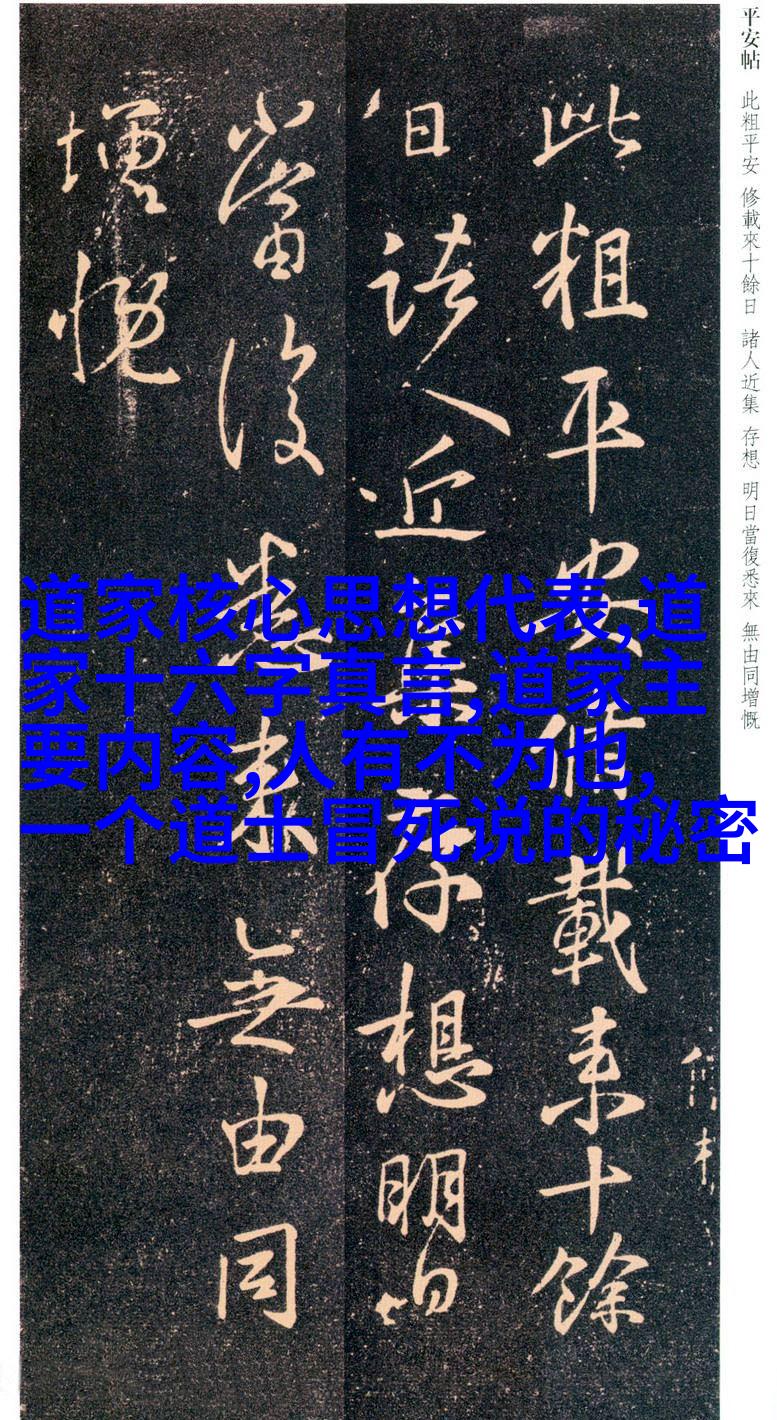 平安帖 此粗平安 修載來十餘日 諸人近集 存想 明日當復悉來 無由同增慨
此粗平安脩載来十餘
日諸人近集存想明日
當復悉来無由同
增慨
道家核心思想代表,道
家十六字真言,道家主
要内容,人有不为也,
一个道士冒死说的秘密